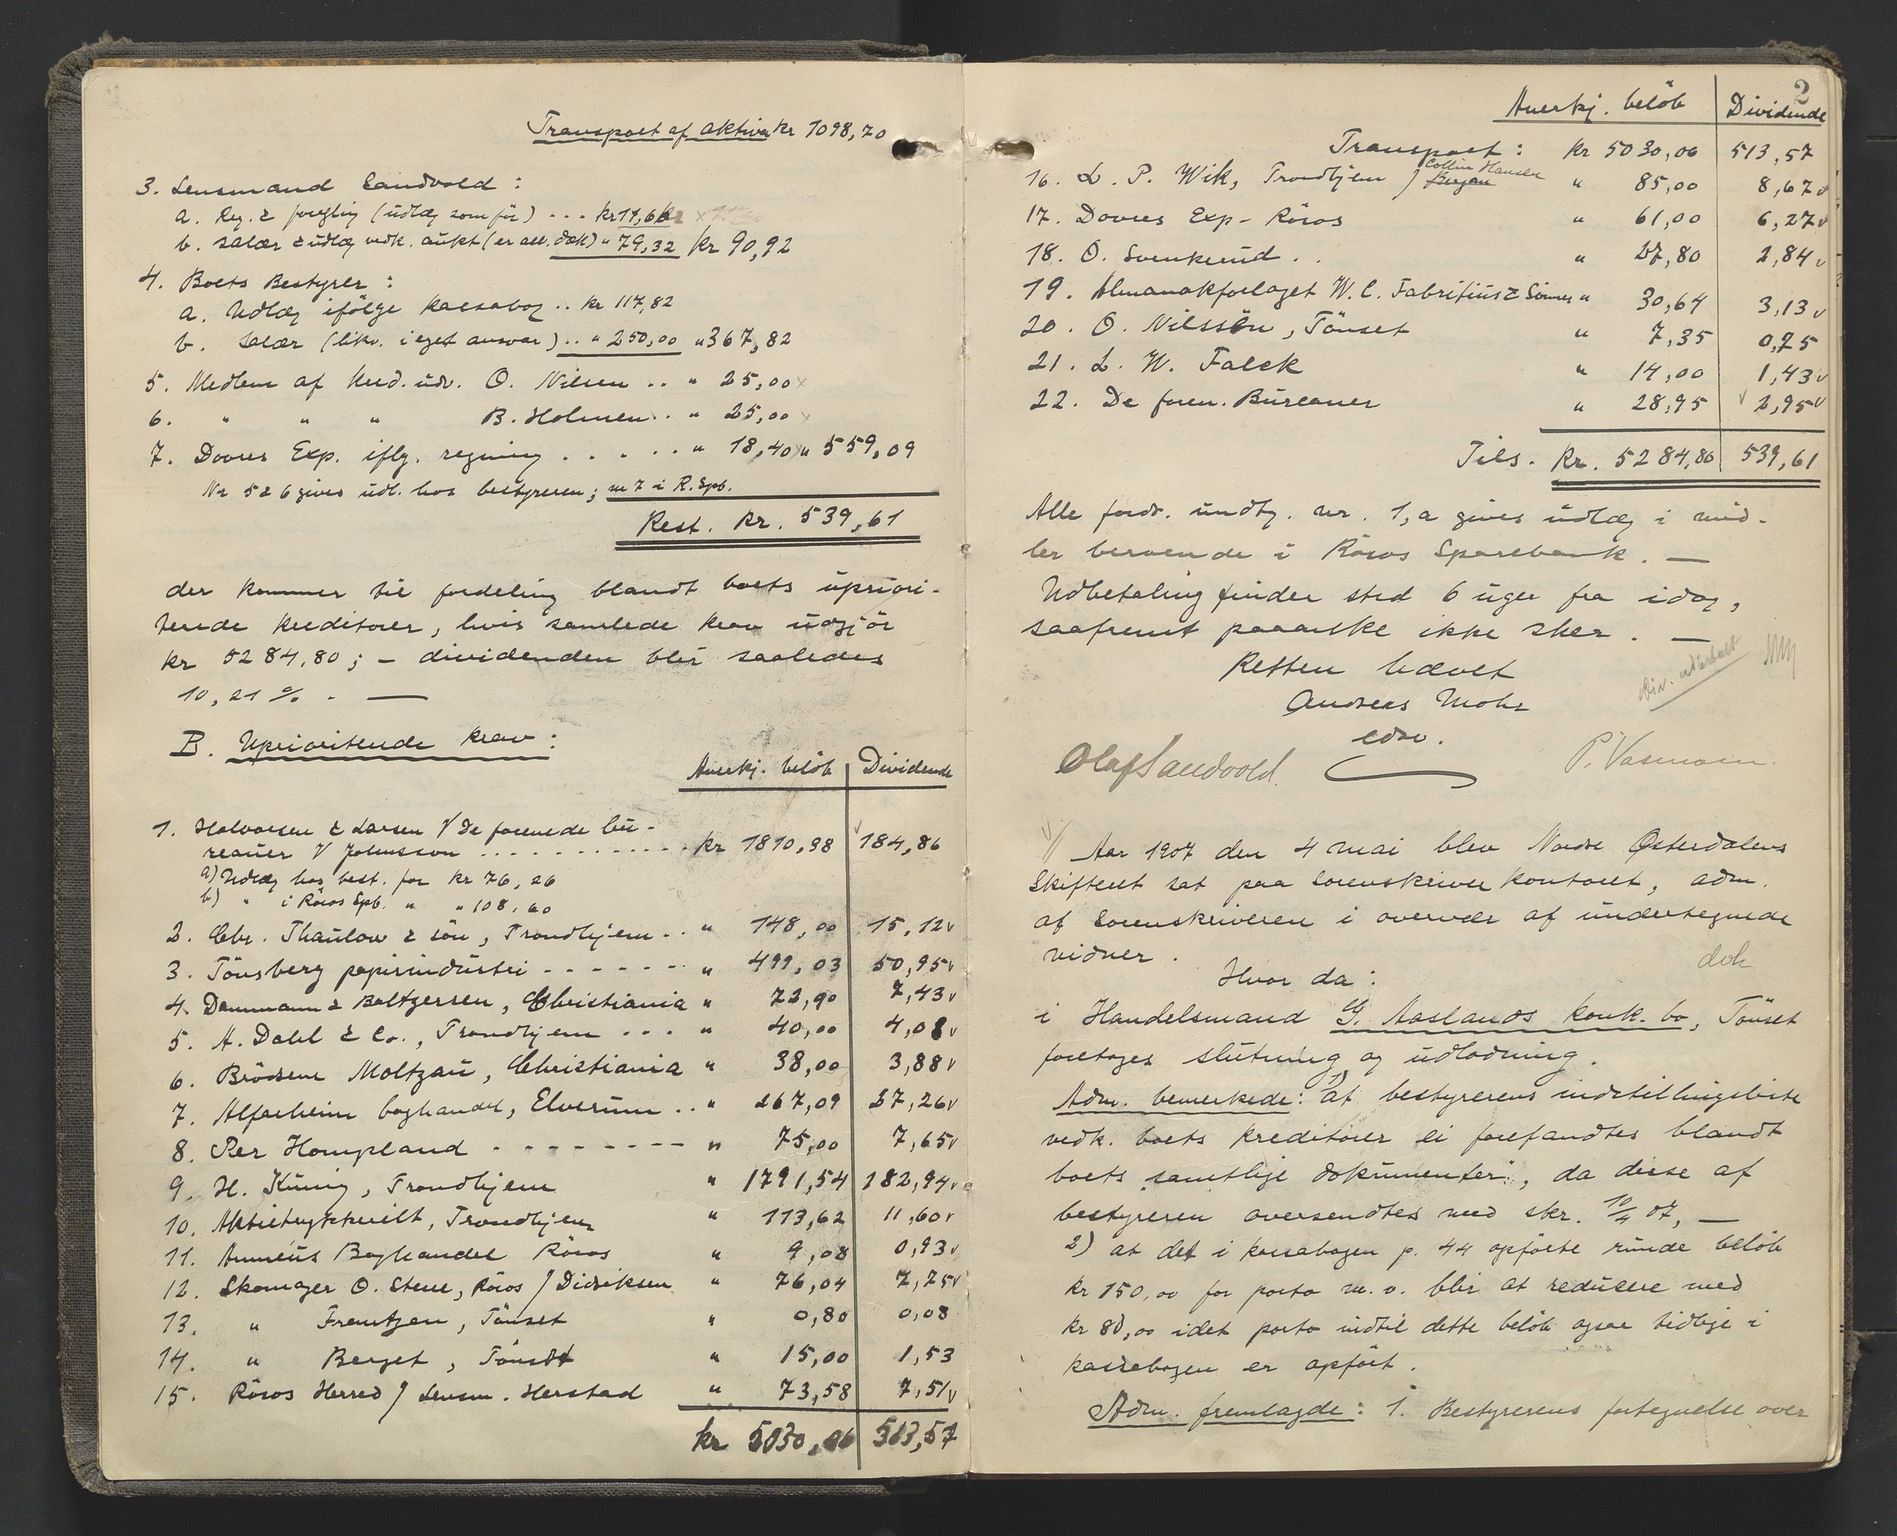 Transport af aktiva kr 1098,70
3. Lensmand Sandvold :
a. Reg. & forsegling (udlæg som før) ... kr 11,60
b. salær & udlæg vedk. aukt (er all. dæk) " 79,32 kr 90,92
4. Boets Bestyrer :
a. Udlæg ifölge kassabog .. kr 117,82
b. Salær (likv. i eget ansvar) .. " 250,00 " 367,82
5. Medlem af kred. udv. O. Nilsen .. " 25,00
6. " " " B. Holmen .. " 25,00
7. Dovres Exp. iflg. regning . . . . . " 18,40 " 559,09
Nr 5 & 6 gives udl. hos bestyreren; nr 7 i R. Spb.
Rest. kr. 539,61
der kommer til fordeling blandt boets upriori-
terede kreditorer, hvis samlede krav udgjör
kr 5284,80; - dividenden blir saaledes
10,21 %. —
B. Uprioriterede krav :
Anerkj. belöb Dividende
1. Halvorsen & Larsen v/ de forenede bu-
reauer v/ Johnsson . . . . . . . . . kr 1810,98 184,86
a) Udlæg hos best. for kr 76,26
b) " i Röros Spb. " " 108,60
2. Chr. Thaulow & sön, Trondhjem .. " 148,00 15,12
3. Tönsberg papirindustri - - - - - - " 499,03 50,95
4. Dammann & Baltzersen, Christiania " 72,90 7,43
5. A. Dahl & Co., Trondhjem . . . " 40,00 4,08
6. Brödrene Moltzau, Christiania " 38,00 3,88
7. Alfarheim boghandel, Elverum .. " 267,09 27,26
8. Per Hompland - - - - - - - - " 75,00 7,65
9. H. König, Trondhjem " 1791,54 182,94
10. Aktietrykkeriet, Trondhjem " 113,62 11,60
11. Amnéus Boghandel Röros " 9,08 0,93
12. Skomager O. Stene, Röros / Didriksen " 76,04 7,75
13. " Frentzen, Tönset " 0,80 0,08
14. " Berget, Tönset " 15,00 1,53
15. Röros Herred / Lensm. Herstad " 73,58 7,51
kr 5030,06 513,57
2
Anerkj. belöb Dividende
Transport : kr 5030,06 513,57
16. L. P. Wik, Trondhjem / Bergan Collin Hansen " 85,00 8,67
17. Dovres Exp - Röros " 61,00 6,27
18. O. Svenkerud . . " 27,80 2,84
19. Almanakforlaget W. C. Fabritius & Sönner " 30,64 3,13
20. O. Nilssön, Tönset " 7,35 0,75
21. L. W. Falck " 14,00 1,43
22. De foren. Bureauer " 28,95 2,95
Tils. kr. 5284,80 539,61
Alle fordr. undtg. nr. 1,a gives udlæg i mid-
ler beroende i Röros Sparebank. —
Udbetaling finder sted 6 uger fra idag,
saafremt paaanke ikke sker. —
Retten hævet
Andreas Mohr
edsv.
Div. udbetalt
Olaf Sandvold. P. Vasmoen.
Aar 1907 den 4 mai blev Nordre Østerdalens
Skifteret sat paa sorenskriverkontoret, adm.
af sorenskriveren i overvær af undertegnede
vidner.
dok
Hvor da :
i Handelsmand G. Aaslands konk. bo, Tönset
foretages slutning og udlodning.
Adm. bemerkede: 1) at bestyrerens indstillingsliste
vedk. boets kreditorer ei forefandtes blandt
boets "samtlige dokumenter", da disse af
bestyreren oversendtes med skr. 10/4 07, —
2) at det i kassabogen p. 44 opförte runde belöb
kr 150,00 for porto m. v. blir at reducere med
kr 80,00 idet porto indtil dette belöb ogsaa tidlige i
kassabogen er opfört.
Adm. fremlagde: 1. Bestyrerens fortegnelse over